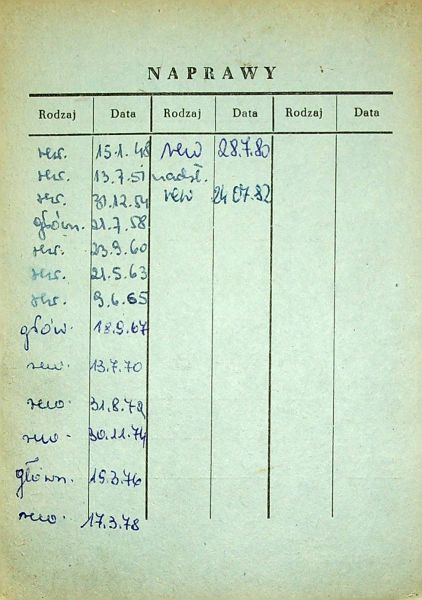 NAPRAWY
Rodzaj Data Rodzaj Data Rodzaj Data
rew. 15.1.48 rew 28.7.80
rew. 13.7.51 nadzł.
rew. 31.12.54 rew 24.07.82
główn. 21.7.58
rew. 23.9.60
rew. 21.5.63
rew. 9.6.65
głów. 18.9.67
rew. 13.7.70
rew. 31.8.72
rew. 30.11.74
główn. 19.3.76
rew. 17.3.78